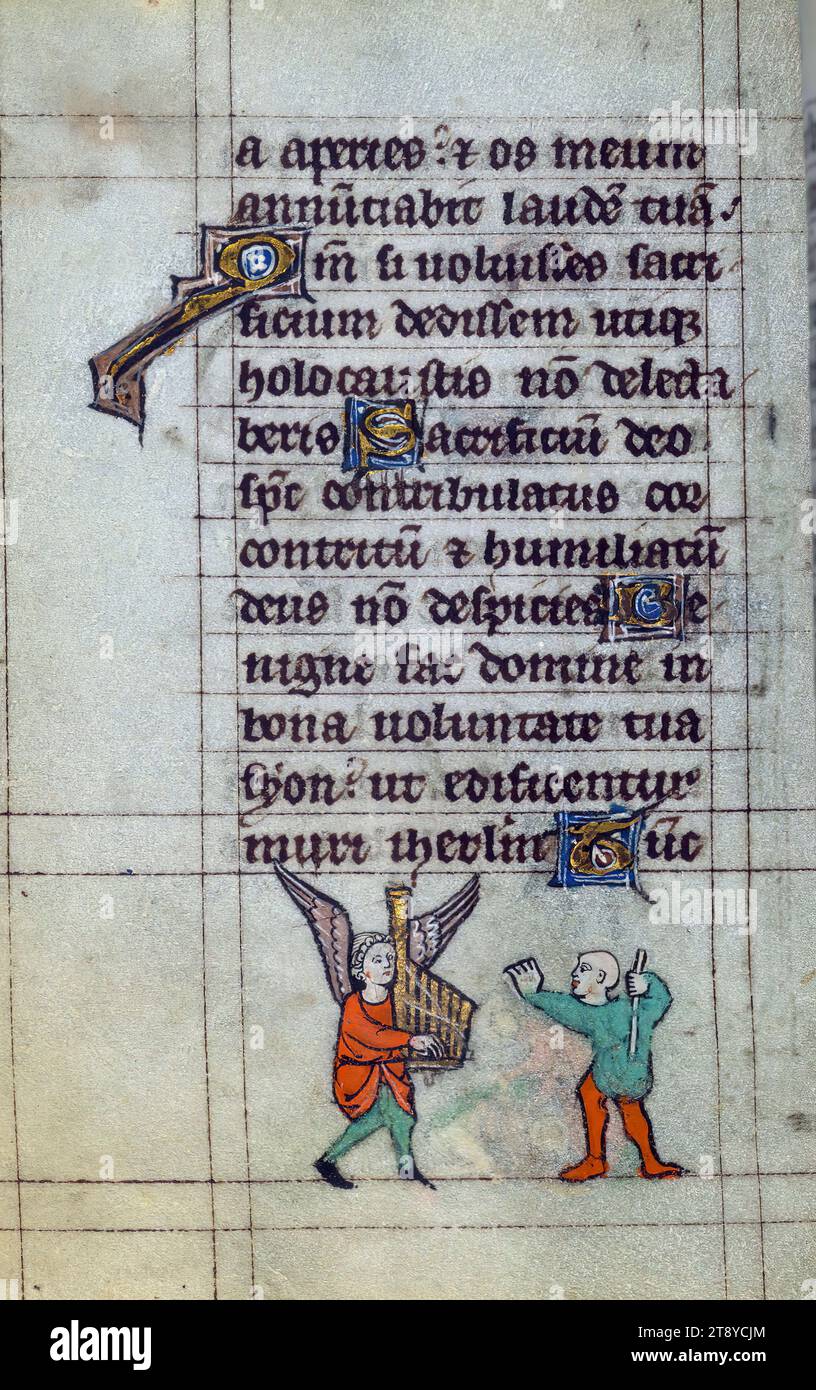 a aperies? & os meum
annūciabit laudē tuā.
Qm̄ si uoluisses sacri
ficium dedissem utiq
holocaustis nō delecta
beris Sacrificiū deo
sp̄c contribulatus cor
contritū & humiliatū
deus nō despicies Be
nigne fac domine in
bona uoluntate tua
syon? ut edificentur
muri iherl̄m Tūc
alamy
alamy
Image ID: 2T8YCJM
www.alamy.com